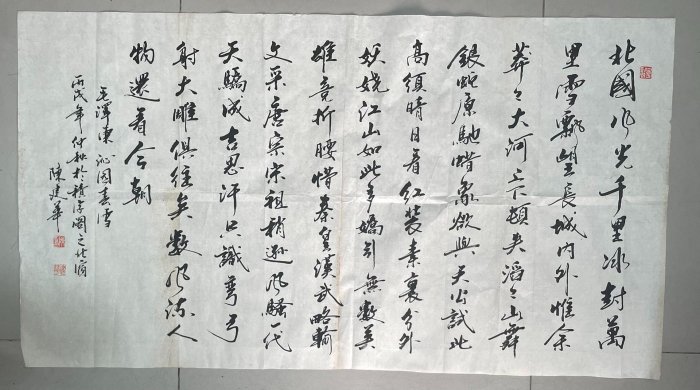 北國风光千里冰封萬
里雪飄望長城内外惟余
莽々大河上下頓失滔々山舞
銀蛇原馳蜡象欲與天公試比
高須晴日看红装素裹分外
妖娆江山如此多嬌引無數英
雄竞折腰惜秦皇漢武略輸
文采唐宗宋祖稍遜风騷一代
天驕成吉思汗只識弯弓
射大雕俱往矣數风流人
物還看今朝
毛澤東沁园春雪
丙戌年仲秋於閣之北窗
陳建華